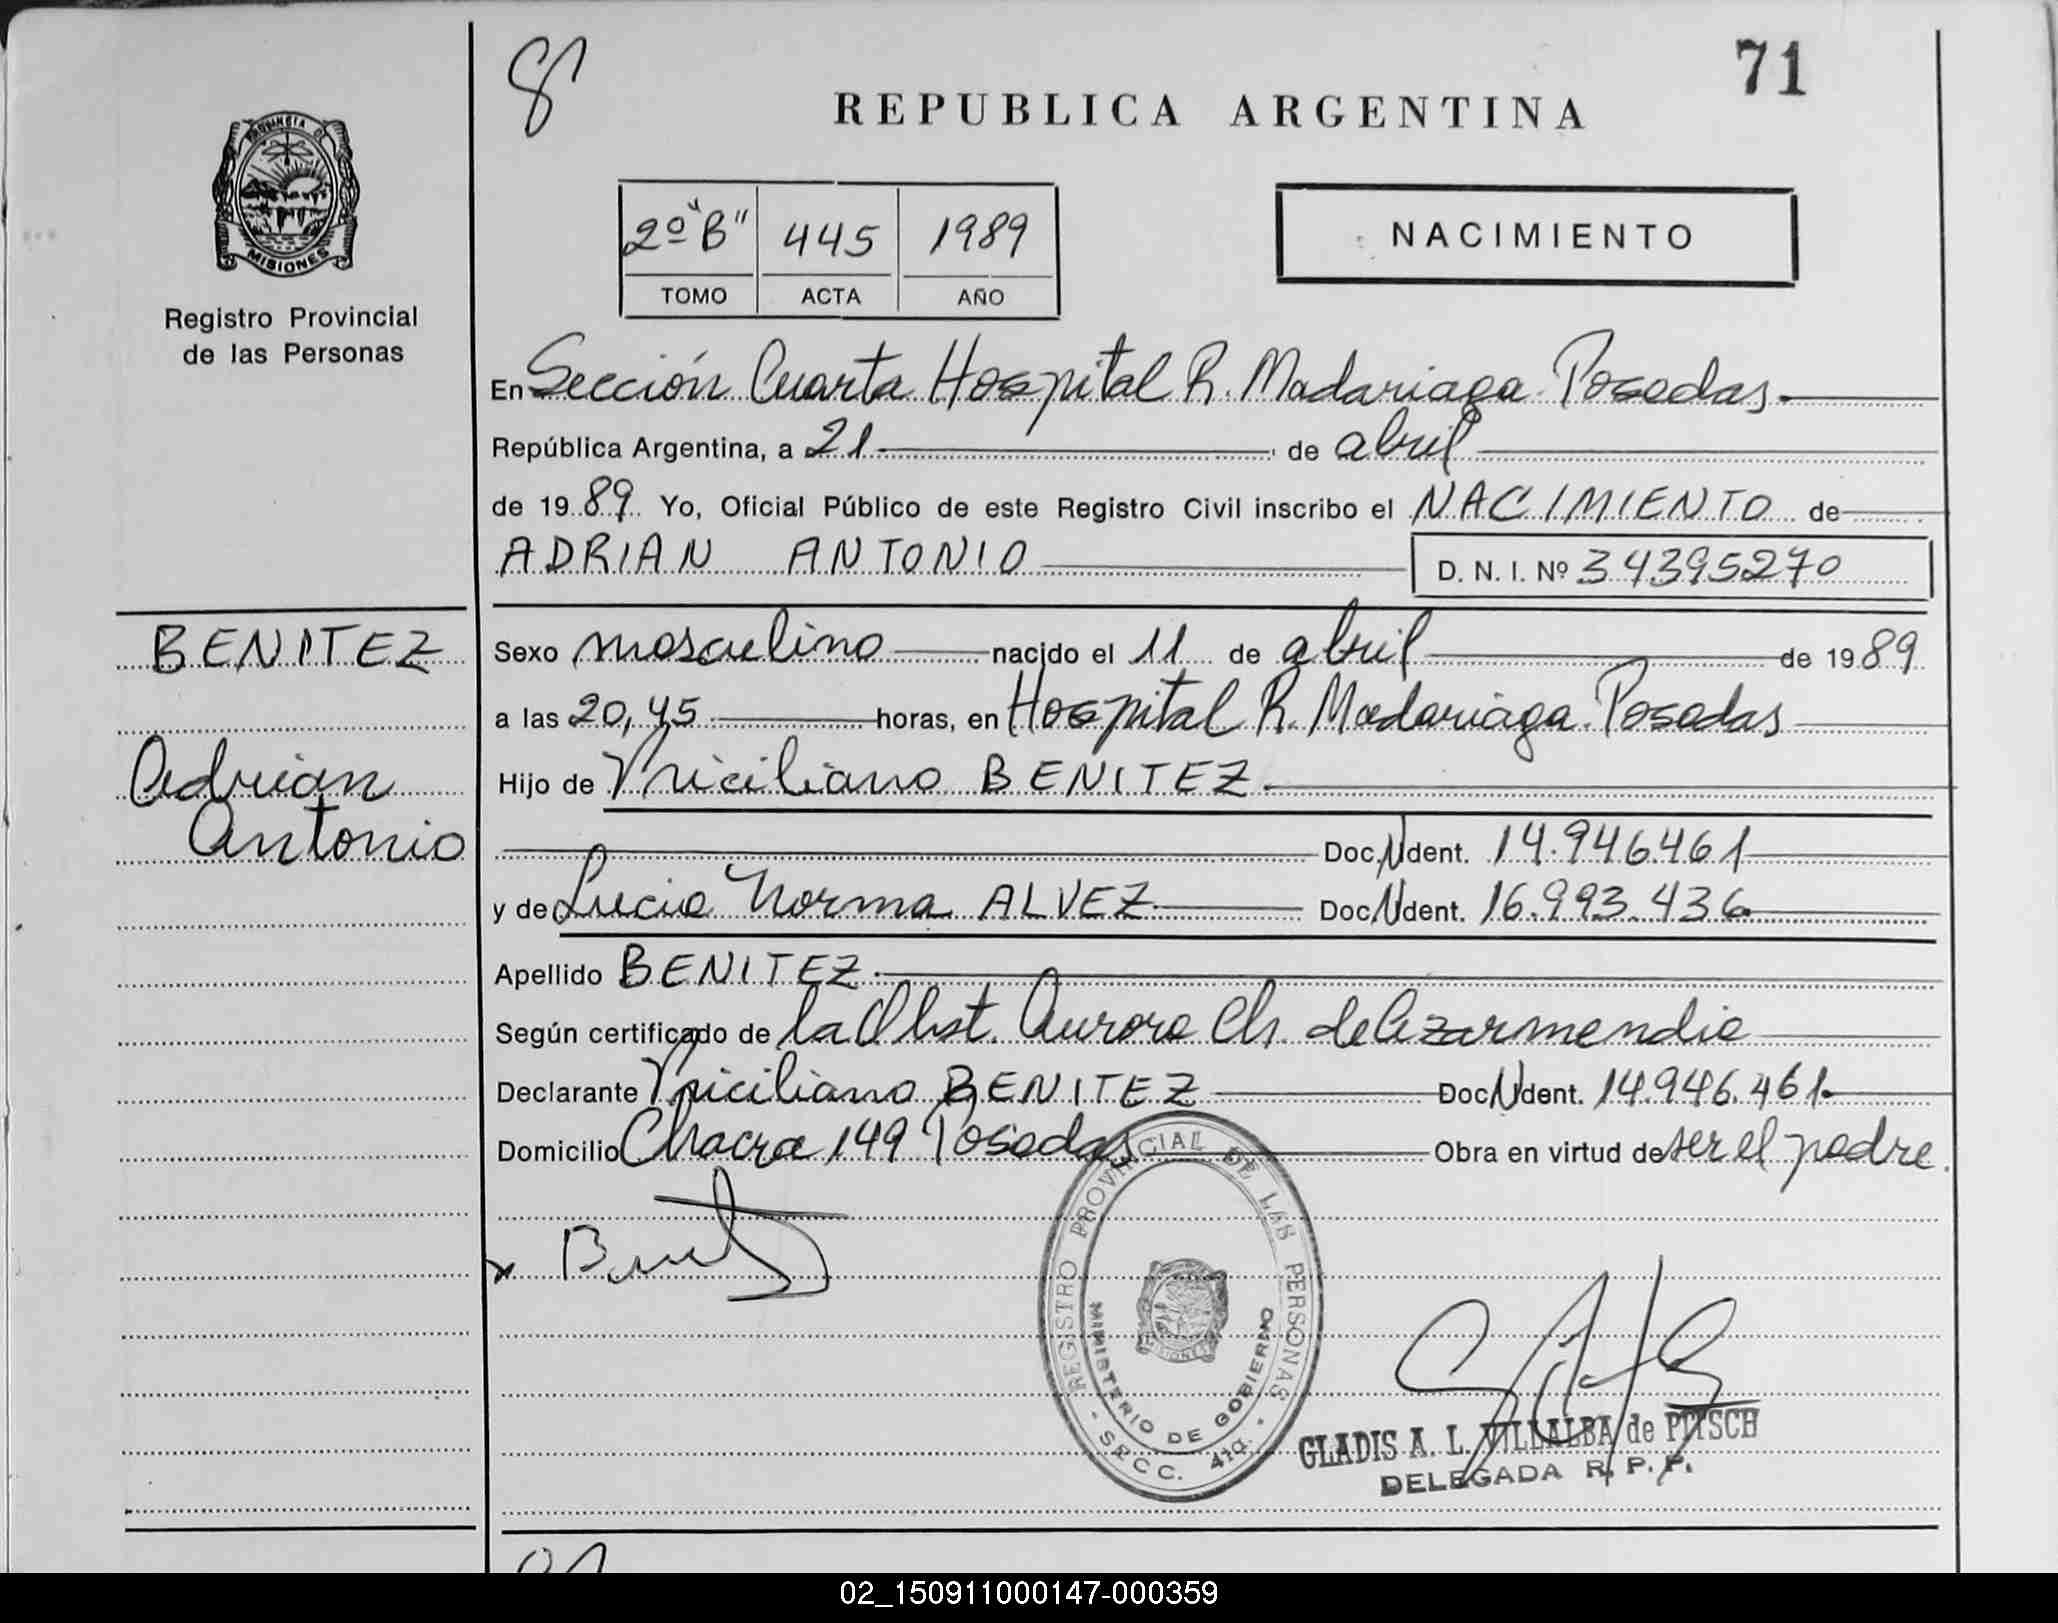 71
REPUBLICA ARGENTINA
PROVINCIA DE
MISIONES
Registro Provincial
de las Personas
2º "B" 445 1989
TOMO ACTA AÑO
NACIMIENTO
En Sección Cuarta Hospital R. Madariaga. Posadas.
República Argentina, a 21 de abril
de 1989. Yo, Oficial Público de este Registro Civil inscribo el NACIMIENTO de
ADRIAN ANTONIO D. N. I. Nº 34395270
BENITEZ
Adrián
Antonio
Sexo masculino nacido el 11 de abril de 1989
a las 20,45 horas, en Hospital R. Madariaga. Posadas
Hijo de Priciliano BENITEZ.
Doc. N Ident. 14.946.461
y de Lucia Norma ALVEZ Doc. N Ident. 16.993.436
Apellido BENITEZ.
Según certificado de la Obst. Aurora Ch. de Azarmendia
Declarante Priciliano BENITEZ Doc N Ident. 14.946.461.
Domicilio Chacra 149 Posadas Obra en virtud de ser el padre.
REGISTRO PROVINCIAL DE LAS PERSONAS
MINISTERIO DE GOBIERNO
MISIONES
- SECC. 4ta. -
GLADIS A. L. VILLALBA de PITSCH
DELEGADA R. P. P.
02_150911000147-000359